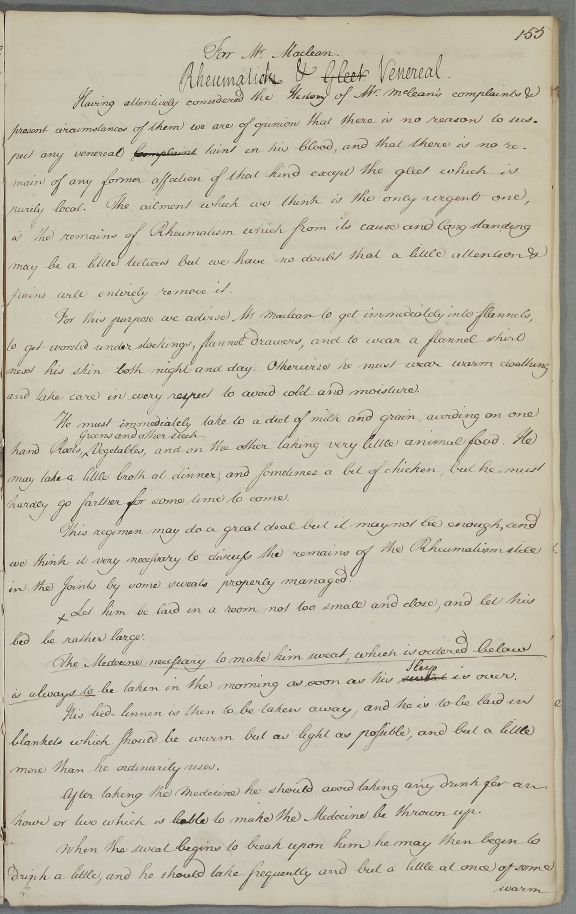 155
For Mr. Maclean.
Rheumatick & Gleet Venereal.
Having attentively considered the History of Mr. McLean's complaints &
present circumstances of them we are of opinion that there is no reason to sus-
pect any venereal complaint taint in his blood, and that there is no re-
main of any former affection of that kind except the gleet which is
purely local. The ailment which we think is the only urgent one,
is the remains of Rheumatism which from its cause and long standing
may be a little tedious but we have no doubt that a little attention &
pains will entirely remove it.
For this purpose we advise Mr Maclean to get immediately into flannels,
to get worsted under stockings, flannel drawers, and to wear a flannel shirt
next his skin both night and day. Otherwise he must wear warm cloathing
and take care in every respect to avoid cold and moisture.
He must immediately take to a diet of milk and grain, avoiding on one
Greens and other fresh
hand Roots, Vegetables, and on the other taking very little animal food. He
may take a little broth at dinner, and sometimes a bit of chicken, but he must
hardly go farther for some time to come.
This regimen may do a great deal but it may not be enough, and
we think it very necessary to discuss the remains of the Rheumatism still
in the Joints by some sweats properly managed.
x Let him be laid in a room not too small and close, and let his
bed be rather large.
The Medicine necessary to make him sweat, which is ordered below
Sleep
is always to be taken in the morning as soon as his sweat is over.
His bed linnen is then to be taken away, and he is to be laid in
blankets which should be warm but as light as possible, and but a little
more than he ordinarily uses.
After taking the Medecine he should avoid taking any drink for an
hour or two which is liable to make the Medecine be thrown up.
When the sweat begins to break upon him he may then begin to
drink a little, and he should take frequently and but a little at once of some
warm